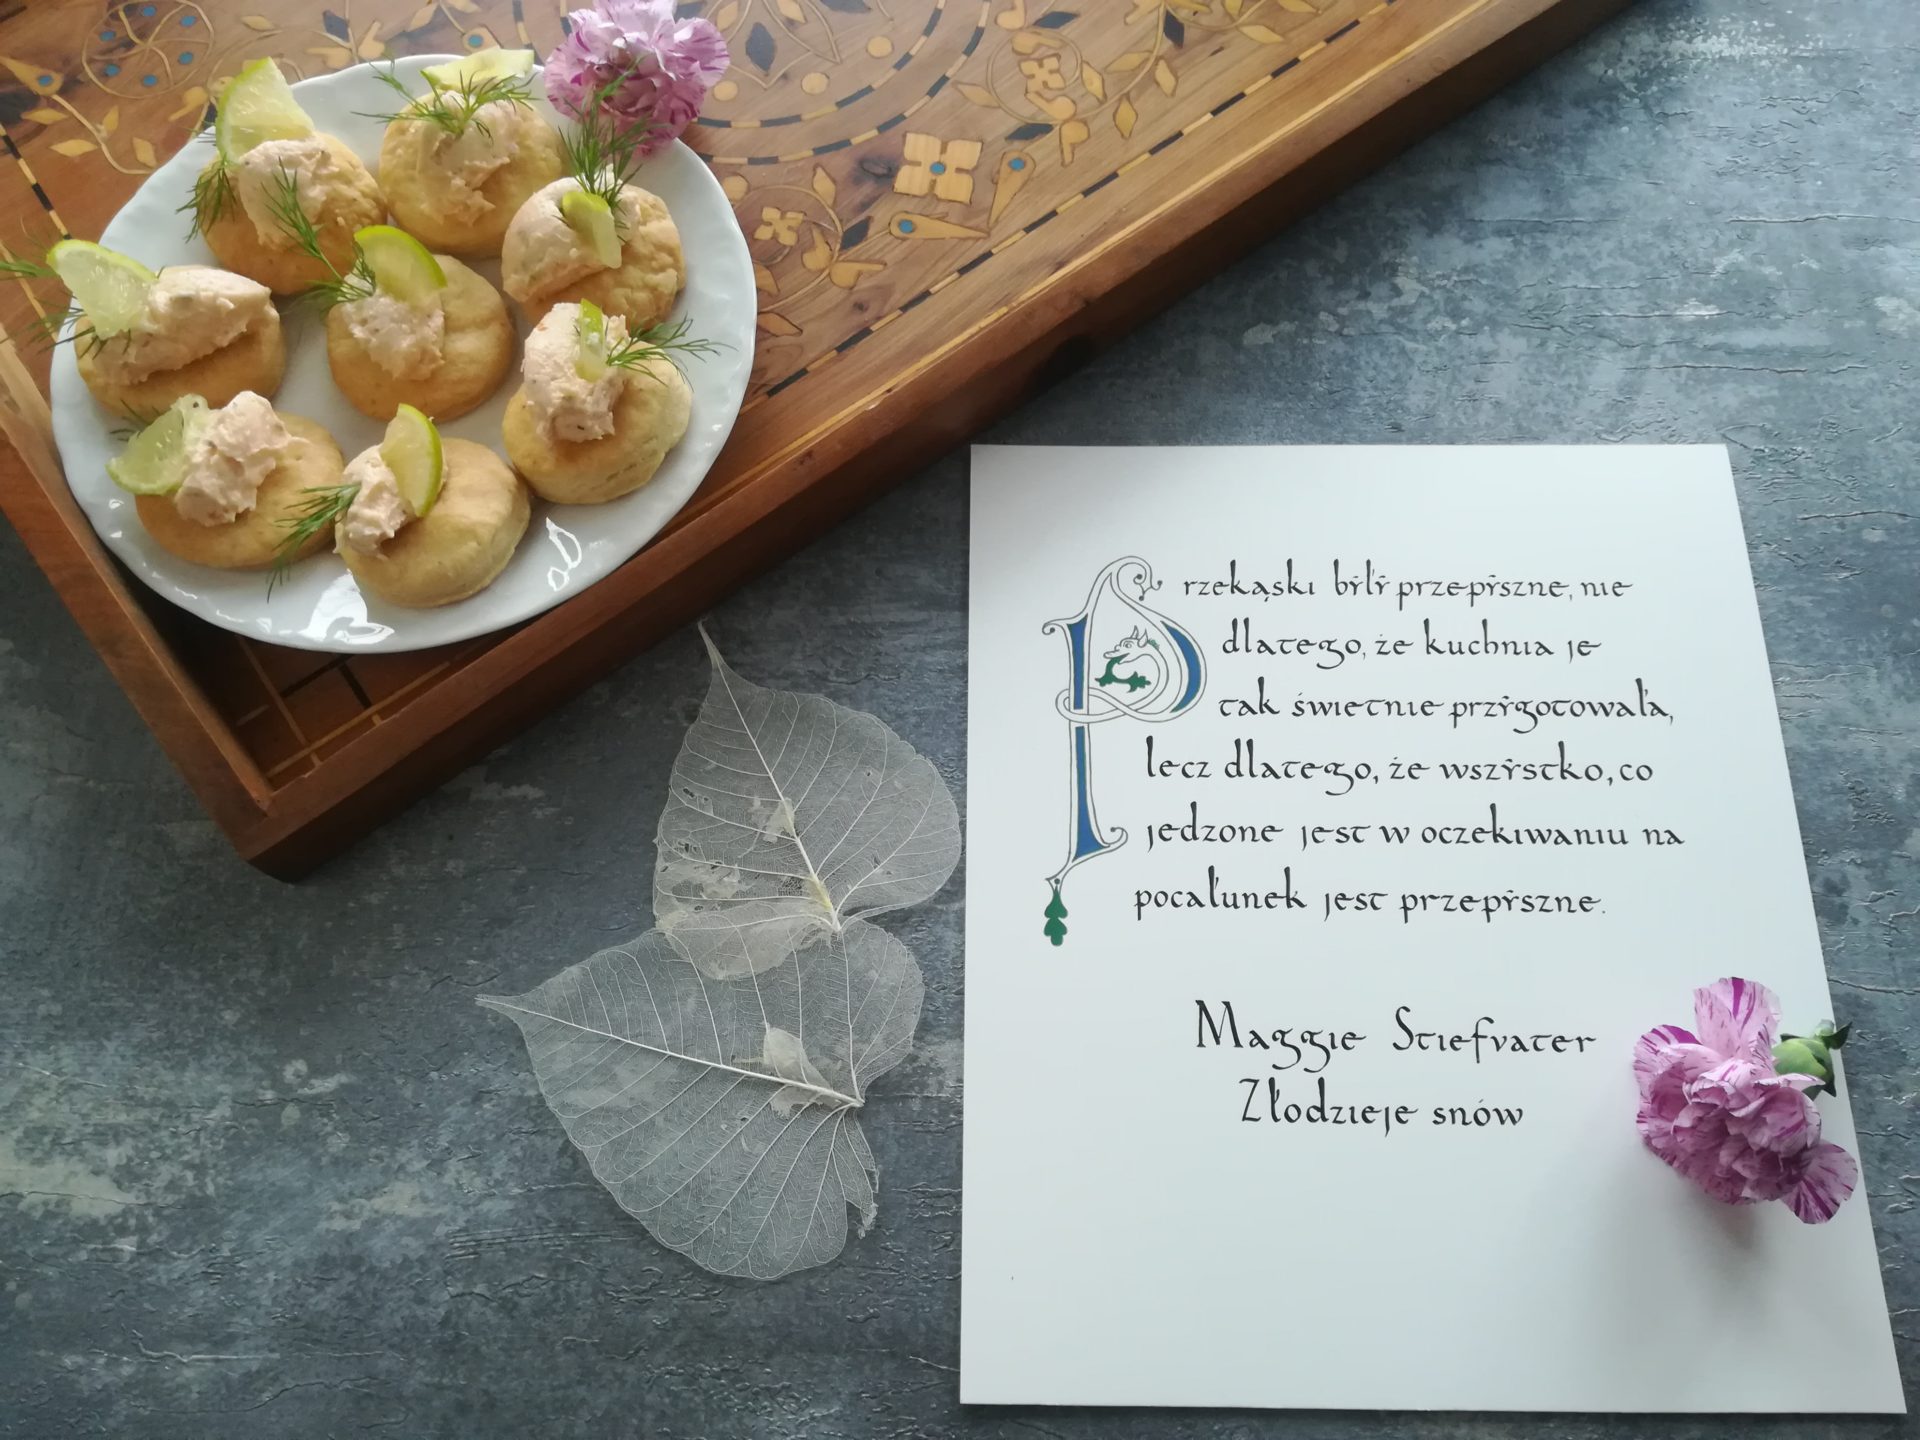 Przekąski były przepyszne, nie
dlatego, że kuchnia je
tak świetnie przygotowała,
lecz dlatego, że wszystko, co
jedzone jest w oczekiwaniu na
pocałunek jest przepyszne.
Maggie Stiefvater
Złodzieje snów